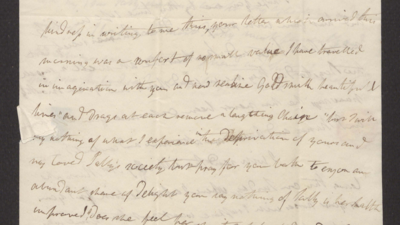 kindness in writing to me thus, your letter which arrived this
morning was a comfort of as much value I have travelled
in imagination with you and now realise Goldsmith beautiful
lines and drags at each remove a lengthing Chain but I will
say nothing of what I experience in the Deprivation of yours and
my loved Sally's society, hurrying for you both to enjoy an
abundant share of Delight you say nothing of Sally is her health
improved? Does she feel her